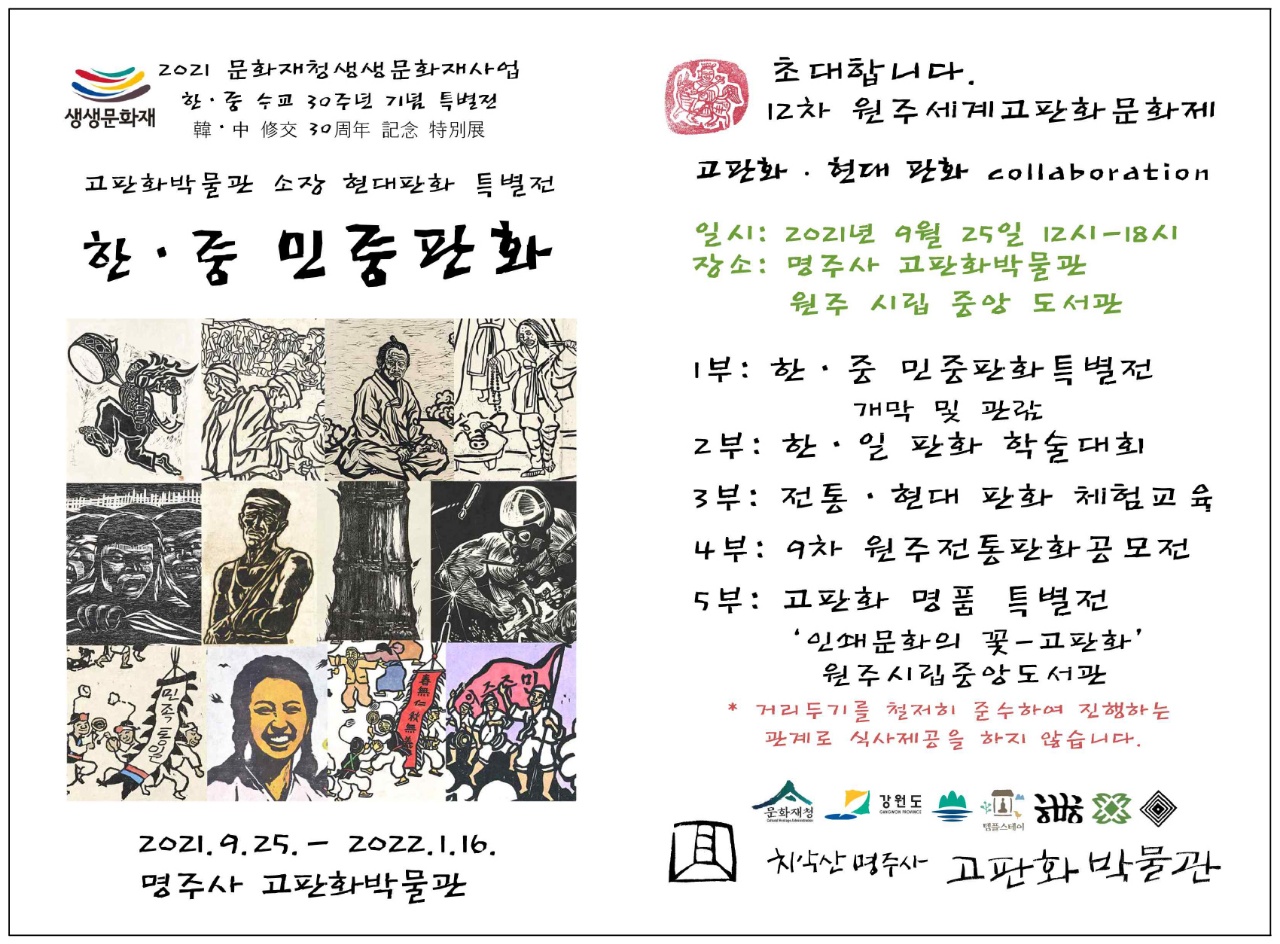 생생문화재
2021 문화재청생생문화재사업
한·중 수교 30주년 기념 특별전
韓·中 修交 30周年 記念 特別展
고판화박물관 소장 현대판화 특별전
한·중 민중판화
민족통일
春無仁 秋無義
2021.9.25. - 2022.1.16.
명주사 고판화박물관
초대합니다.
12차 원주세계고판화문화제
고판화·현대 판화 collaboration
일시: 2021년 9월 25일 12시-18시
장소: 명주사 고판화박물관
원주 시립 중앙 도서관
1부: 한·중 민중판화특별전
개막 및 관람
2부: 한·일 판화 학술대회
3부: 전통·현대 판화 체험교육
4부: 9차 원주전통판화공모전
5부: 고판화 명품 특별전
'인쇄문화의 꽃-고판화'
원주시립중앙도서관
* 거리두기를 철저히 준수하여 진행하는
관계로 식사제공을 하지 않습니다.
문화재청
Cultural Heritage Administration
강원도
GANGWON PROVINCE
템플스테이
치악산 명주사 고판화박물관